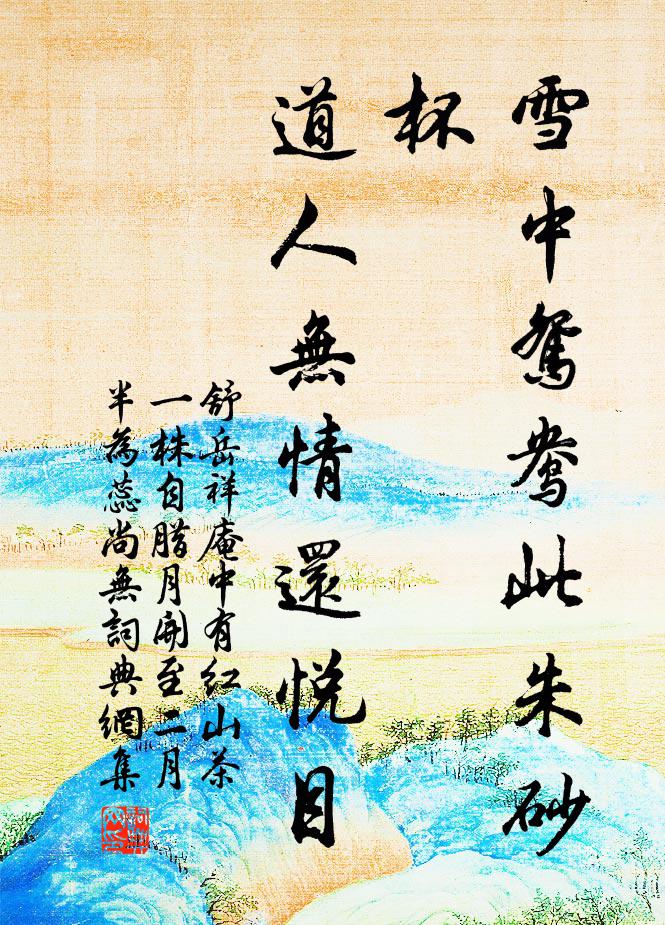 雪中鴛鴦此朱砂
杯
道人無情還悅目
舒岳祥庵中有紅山茶
一株自腊月開至二月
半為蕊尚無詞典網集